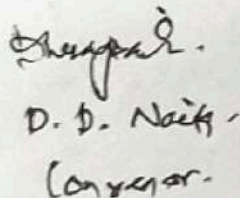 D. D. Naik,
Convenor.